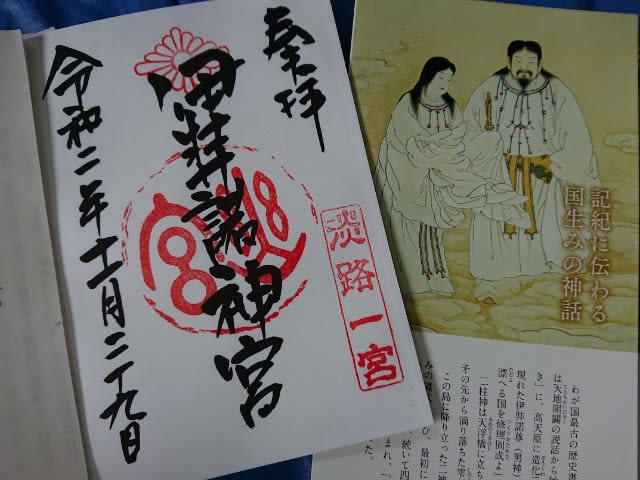 奉拝
伊弉諾神宮
令和二年十一月二十九日
淡路一宮
記紀に伝わる
国生みの神話
わが国最古の歴史書
は天地開闢の説話から
き」に、高天原に造化
現れた伊弉諾尊(男神)
漂へる国を修理固成よ」
二柱神は天浮橋に立ち
矛の先から滴り落ちた雫
この島に降り立った二神
び、最初に
続いて四
まれ、「